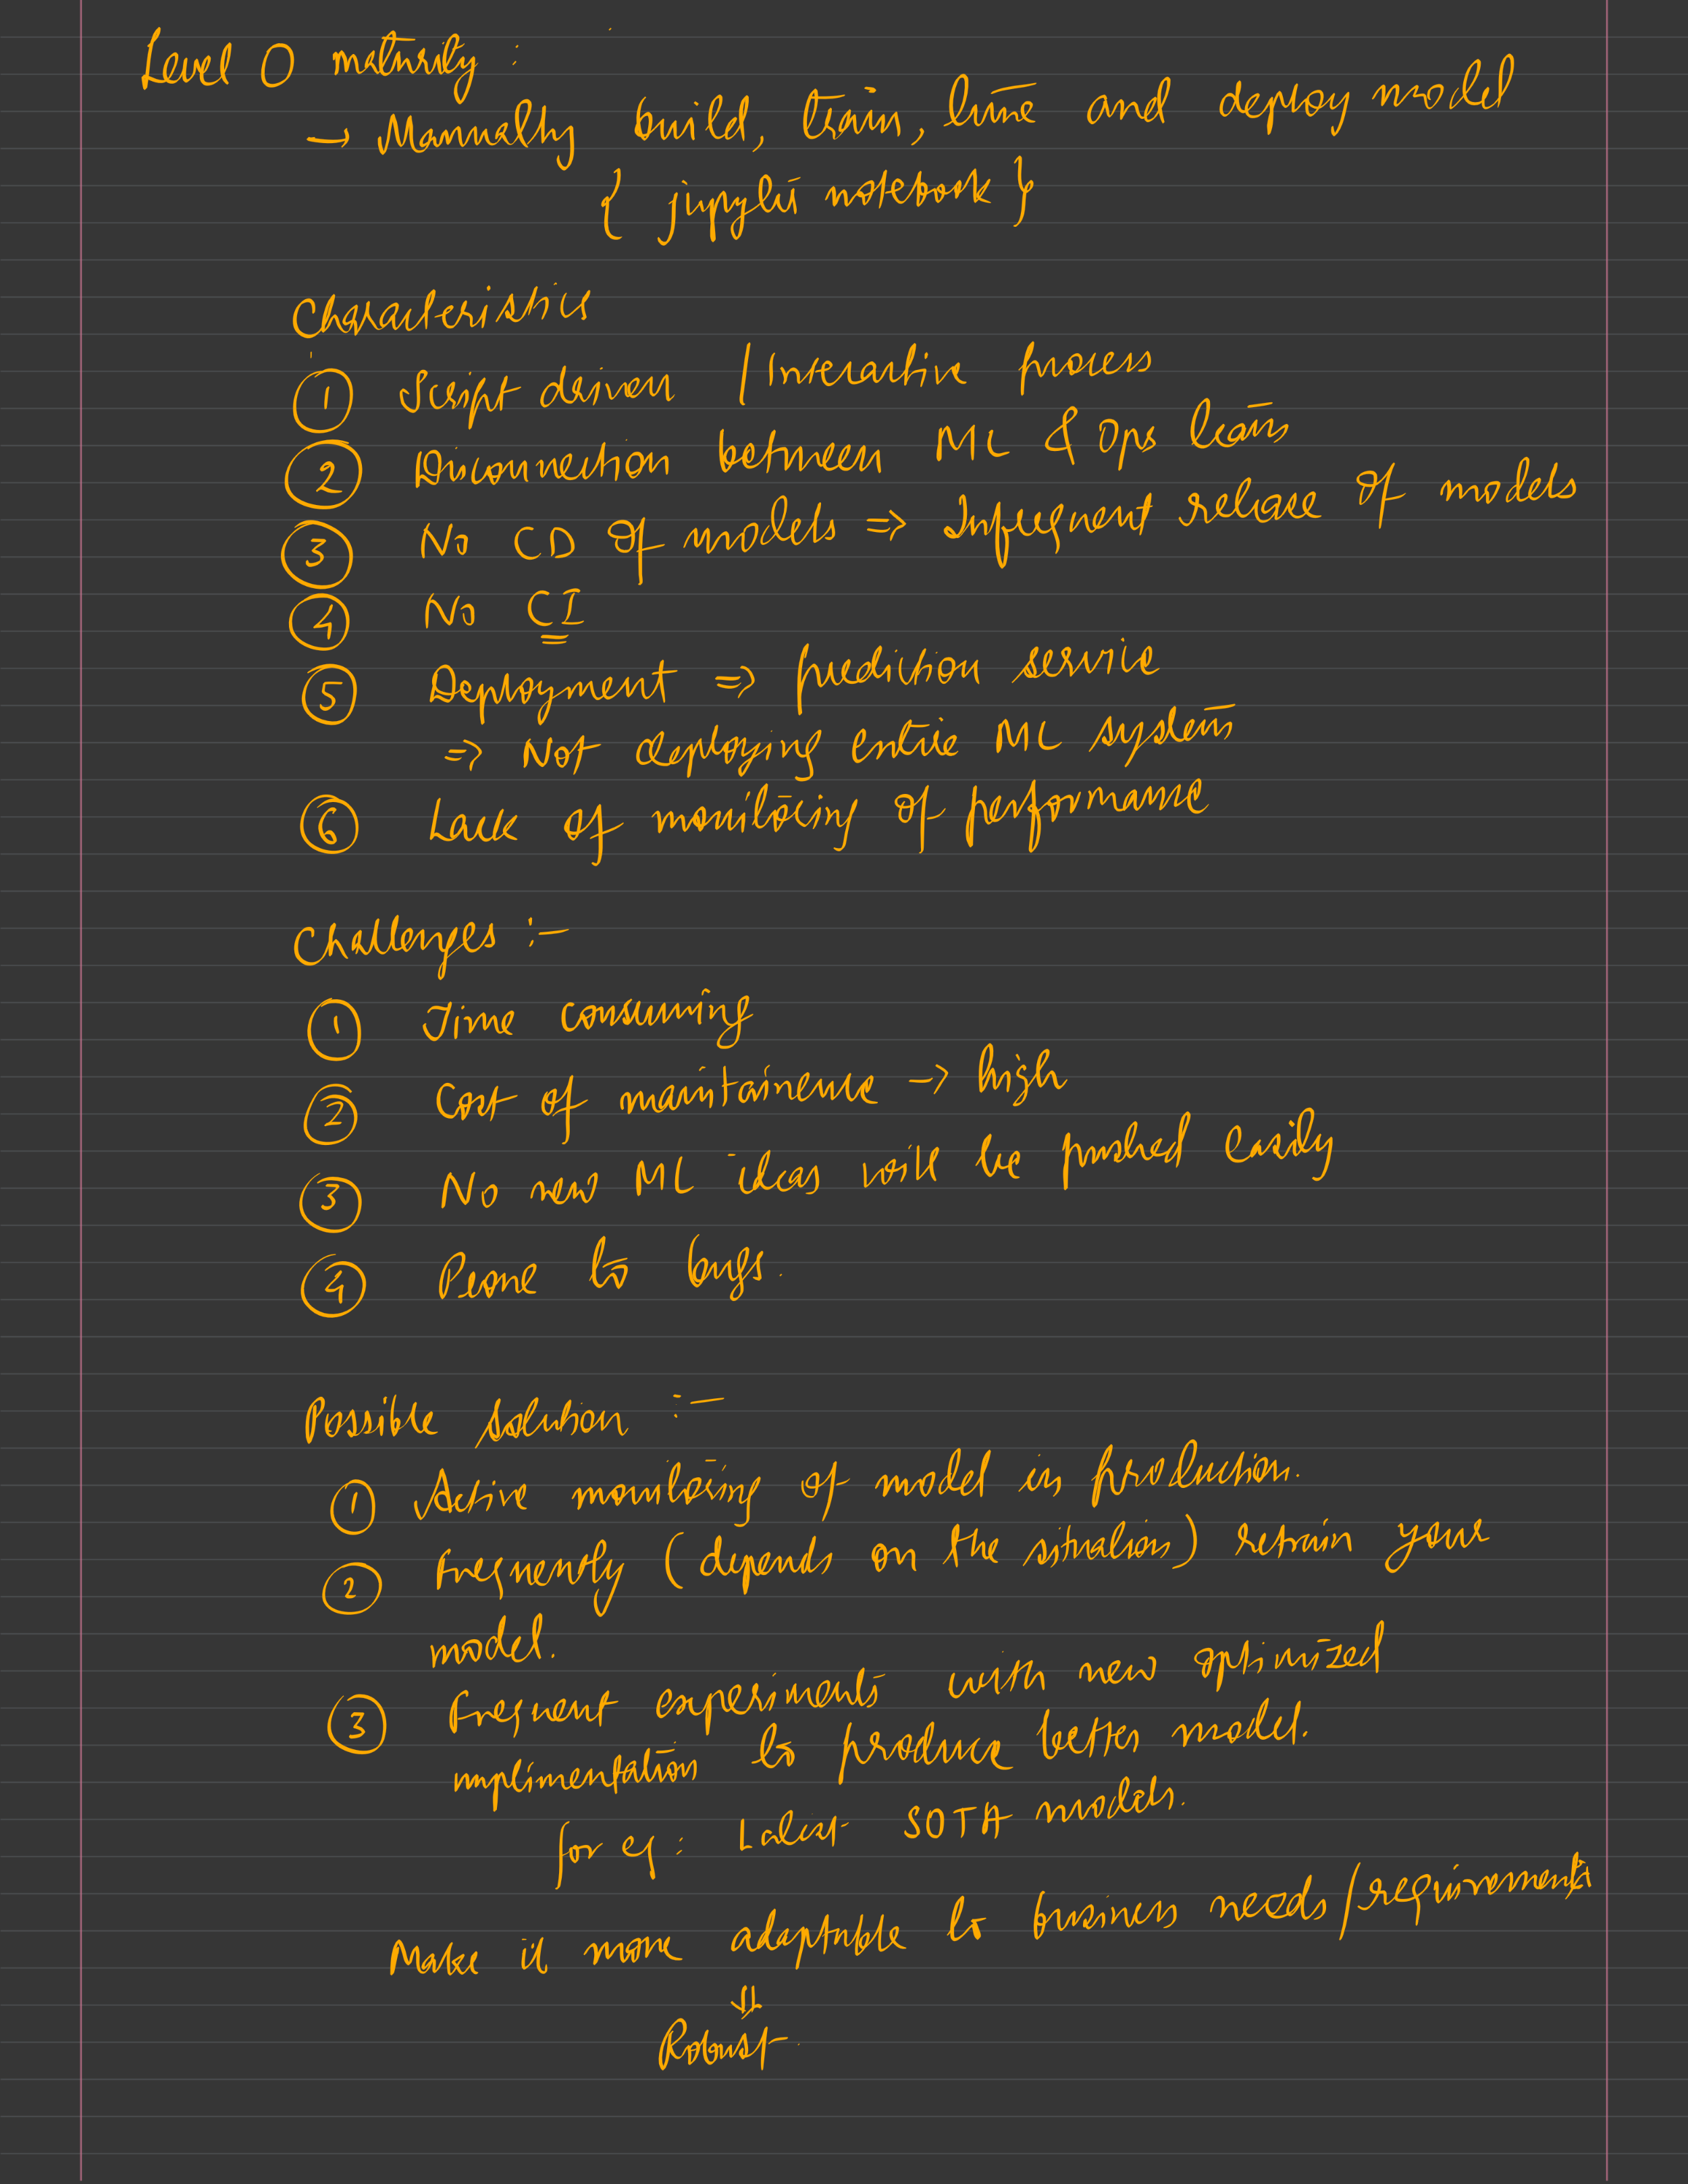 Level 0 maturity :
→ Manually build, train, tune and deploy model
{ jupyter notebook }
Characteristics
① Script driven / Interactive process
② Disconnection between ML & Ops team
③ No CD of models ⇒ Infrequent release of models
④ No CI
⑤ Deployment ⇒ prediction service
⇒ Not deploying entire ML system
⑥ Lack of monitoring of performance
Challenges :-
① Time consuming
② Cost of maintainence → high
③ No new ML ideas will be pushed easily
④ Prone to bugs.
Possible solution :-
① Active monitoring of model in production.
② Frequently (depends on the situation) retrain your
model.
③ Frequent experiments with new optimized
implimentation to produce better model.
for eg: Latest SOTA models.
Make it more adaptable to business needs/requirements
⇓
Robust.